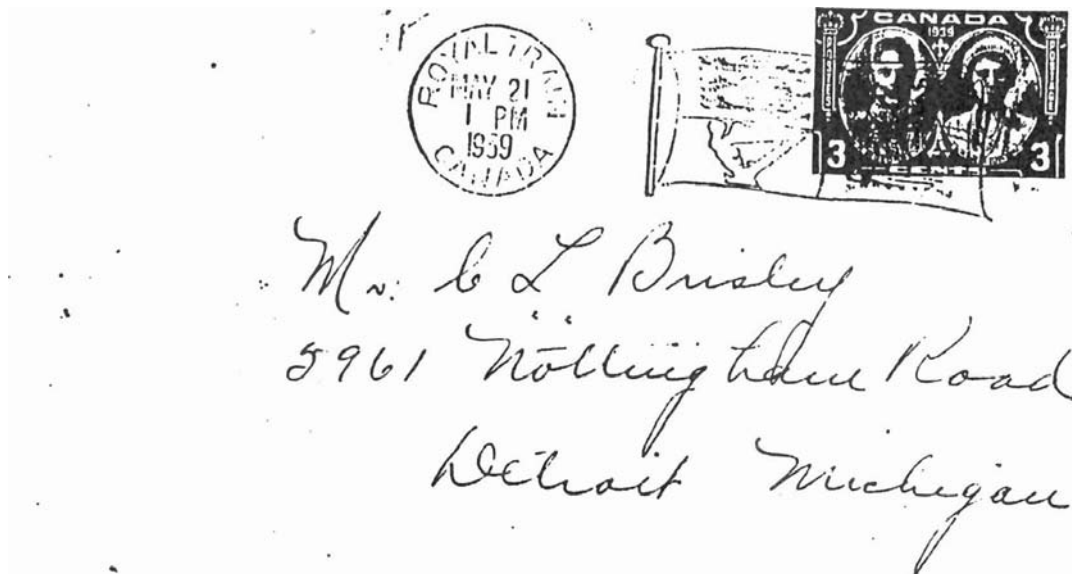 ROYAL TRAIN
MAY 21
1 PM
1939
CANADA
CANADA
1939
POSTES
POSTAGE
3 CENTS 3
Mr. C L Brisley
5961 Nottingham Road
Detroit Michigan